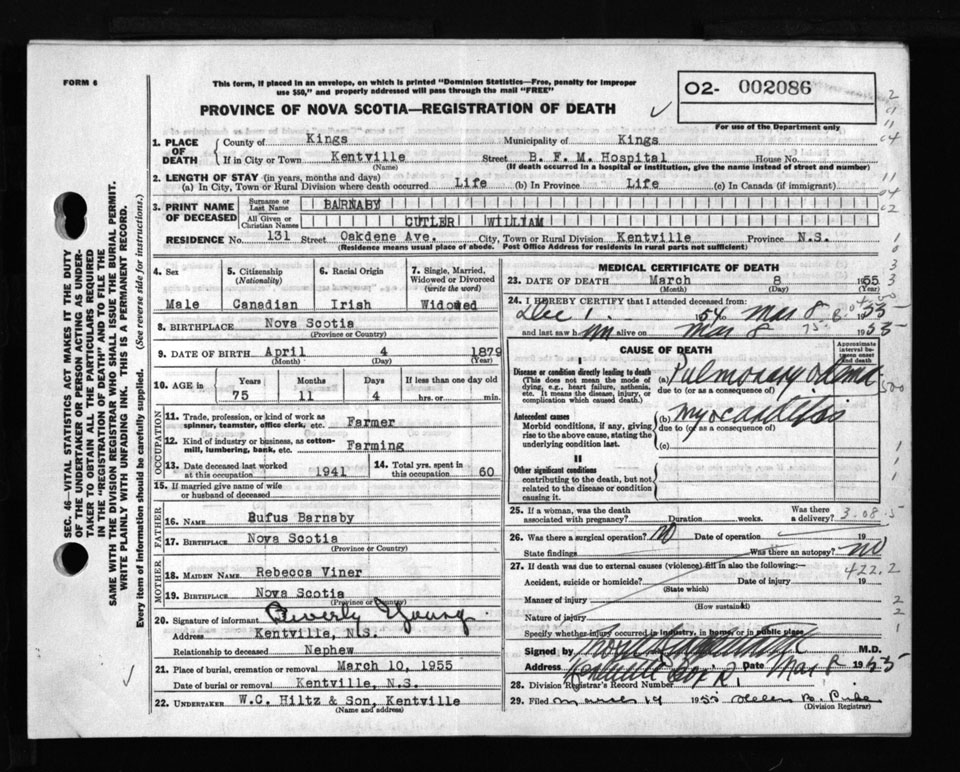 FORM 6
This form, if placed in an envelope, on which is printed "Dominion Statistics—Free, penalty for improper
use $50," and properly addressed will pass through the mail "FREE"
PROVINCE OF NOVA SCOTIA—REGISTRATION OF DEATH
O2- 002086
For use of the Department only
1. PLACE OF DEATH
County of Kings Municipality of Kings
If in City or Town Kentville Street B. F. M. Hospital House No.
(Name) (If death occurred in a hospital or institution, give the name instead of street and number)
2. LENGTH OF STAY (in years, months and days)
(a) In City, Town or Rural Division where death occurred Life (b) In Province Life (c) In Canada (if immigrant)
3. PRINT NAME OF DECEASED
Surname or Last Name BARNABY
All Given or Christian Names CUTLER WILLIAM
RESIDENCE No. 131 Street Oakdene Ave. City, Town or Rural Division Kentville Province N.S.
(Residence means usual place of abode. Post Office Address for residents in rural parts not sufficient)
4. Sex Male
5. Citizenship (Nationality) Canadian
6. Racial Origin Irish
7. Single, Married, Widowed or Divorced (write the word) Widowed
8. BIRTHPLACE Nova Scotia
(Province or Country)
9. DATE OF BIRTH April 4 1879
(Month) (Day) (Year)
10. AGE IN Years Months Days If less than one day old
75 11 4 hrs. or min.
OCCUPATION
11. Trade, profession, or kind of work as
spinner, teamster, office clerk, etc. Farmer
12. Kind of industry or business, as cotton-
mill, lumbering, bank, etc. Farming
13. Date deceased last worked
at this occupation 1941
14. Total yrs. spent in
this occupation 60
15. If married give name of wife
or husband of deceased
FATHER
16. NAME Rufus Barnaby
17. BIRTHPLACE Nova Scotia
(Province or Country)
MOTHER
18. MAIDEN NAME Rebecca Viner
19. BIRTHPLACE Nova Scotia
(Province or Country)
20. Signature of informant Beverly Young
Address Kentville, N.S.
Relationship to deceased Nephew
21. Place of burial, cremation or removal March 10, 1955
Date of burial or removal Kentville, N.S.
22. UNDERTAKER W.C. Hiltz & Son, Kentville
(Name and address)
MEDICAL CERTIFICATE OF DEATH
23. DATE OF DEATH March 8 1955
(Month) (Day) (Year)
24. I HEREBY CERTIFY that I attended deceased from:
Dec 1 1954 Mar 8 1955
and last saw him alive on Mar 8 1955
CAUSE OF DEATH
Approximate interval between onset and death
I
Disease or condition directly leading to death
(This does not mean the mode of dying, e.g., heart failure, asthenia, etc. It means the disease, injury, or complication which caused death.)
(a) Pulmonary
due to (or as a consequence of)
Antecedent causes
Morbid conditions, if any, giving rise to the above cause, stating the underlying condition last.
(b)
due to (or as a consequence of)
(c)
II
Other significant conditions
contributing to the death, but not related to the disease or condition causing it.
25. If a woman, was the death
associated with pregnancy? Duration weeks. Was there a delivery? 3.08.5
26. Was there a surgical operation? No Date of operation 19
State findings Was there an autopsy? no
27. If death was due to external causes (violence) fill in also the following: 422.2
Accident, suicide or homicide? Date of injury 19
(State which)
Manner of injury
(How sustained)
Nature of injury
Specify whether injury occurred in industry, in home, or in public place
Signed by M.D.
Address Kentville Box Date Mar 8 1955
28. Division Registrar's Record Number
29. Filed March 19 1955 Helen B.
(Division Registrar)
SEC. 46—VITAL STATISTICS ACT MAKES IT THE DUTY
OF THE UNDERTAKER OR PERSON ACTING AS UNDER-
TAKER TO OBTAIN ALL THE PARTICULARS REQUIRED
IN THE "REGISTRATION OF DEATH" AND TO FILE THE
SAME WITH THE DIVISION REGISTRAR WHO SHALL ISSUE THE BURIAL PERMIT.
WRITE PLAINLY WITH UNFADING INK. THIS IS A PERMANENT RECORD.
Every item of information should be carefully supplied. (See reverse side for instructions.)